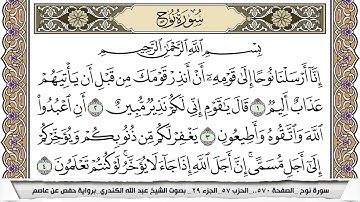 سُورَةُ نُوحٍ
بِسْمِ اللَّهِ الرَّحْمَٰنِ الرَّحِيمِ
إِنَّا أَرْسَلْنَا نُوحًا إِلَىٰ قَوْمِهِ أَنْ أَنذِرْ قَوْمَكَ مِن قَبْلِ أَن يَأْتِيَهُمْ
عَذَابٌ أَلِيمٌ ١ قَالَ يَا قَوْمِ إِنِّي لَكُمْ نَذِيرٌ مُّبِينٌ ٢ أَنِ اعْبُدُوا
اللَّهَ وَاتَّقُوهُ وَأَطِيعُونِ ٣ يَغْفِرْ لَكُم مِّن ذُنُوبِكُمْ وَيُؤَخِّرْكُمْ
إِلَىٰ أَجَلٍ مُّسَمًّى إِنَّ أَجَلَ اللَّهِ إِذَا جَاءَ لَا يُؤَخَّرُ لَوْ كُنتُمْ تَعْلَمُونَ ٤
سورة نوح _ الصفحة ٥٧٠ _ الحزب ٥٧ _ الجزء ٢٩ _ بصوت الشيخ عبد الله الكندري _ برواية حفص عن عاصم